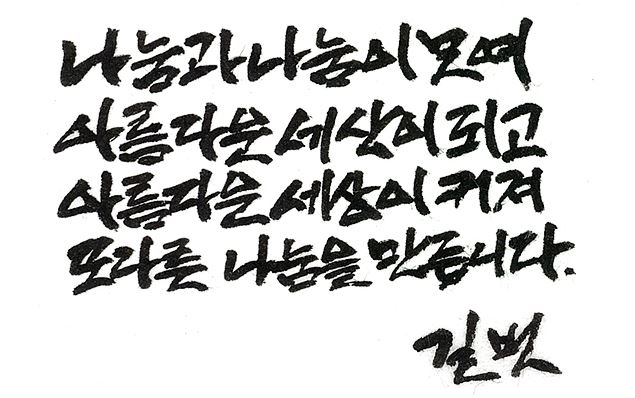 나눔과 나눔이 모여
아름다운 세상이 되고
아름다운 세상이 커져
또다른 나눔을 만듭니다.
길벗